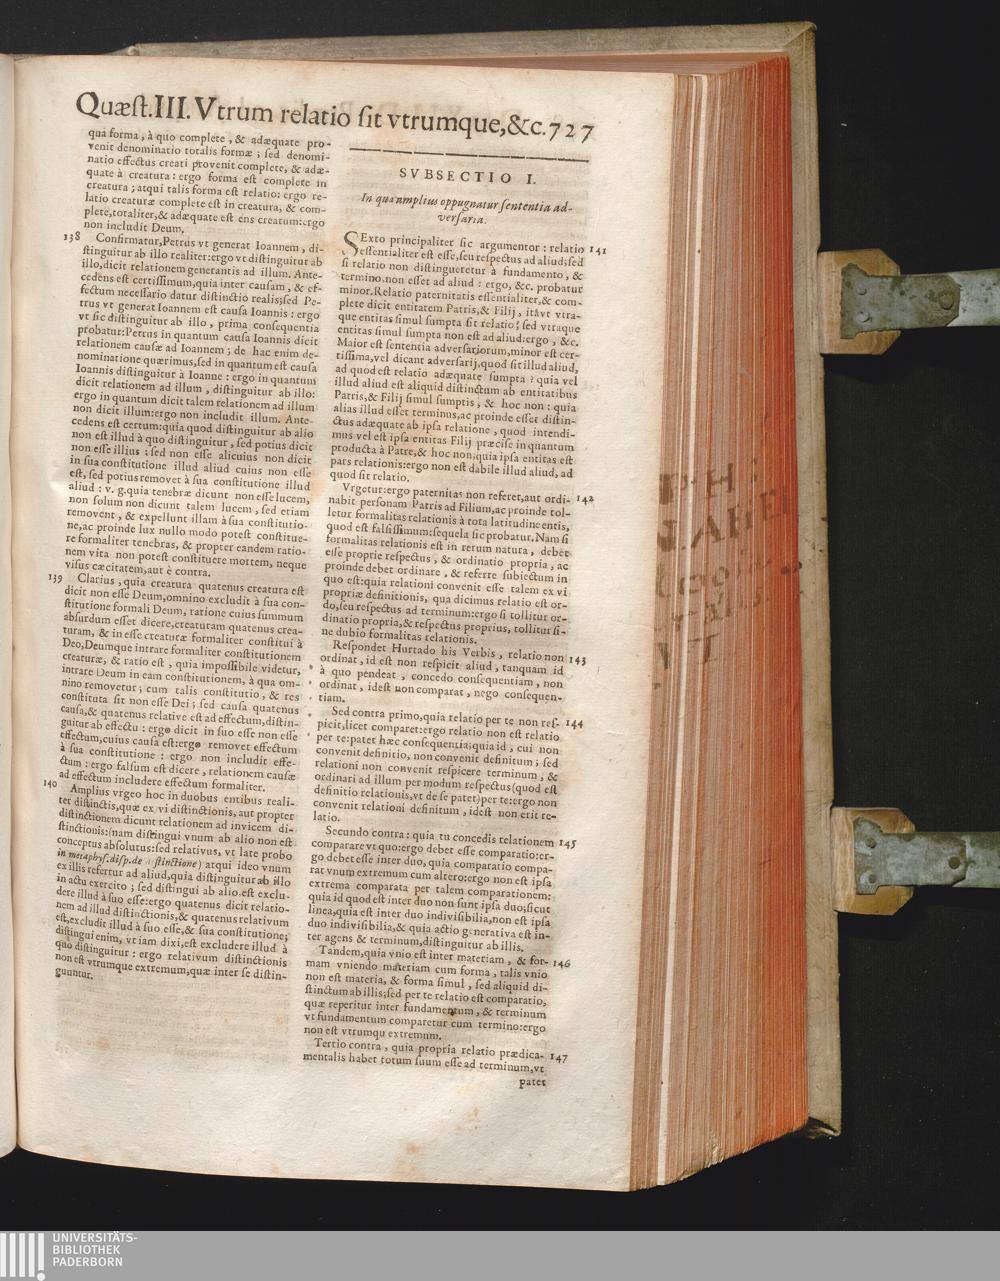 Quæst.III.Vtrum relatio sit vtrumque,&c.727
qua forma, à quo complete, & adæquate pro-
venit denominatio totalis formæ; sed denomi-
natio effectus creati provenit complete, & adæ-
quate à creatura: ergo forma est complete in
creatura; atqui talis forma est relatio: ergo re-
latio creaturæ complete est in creatura, & com-
plete,totaliter,& adæquate est ens creatum:ergo
non includit Deum.
138 Confirmatur,Petrus vt generat Ioannem, di-
stinguitur ab illo realiter:ergo vt distinguitur ab
illo,dicit relationem generantis ad illum. Ante-
cedens est certissimum,quia inter causam, & ef-
fectum necessario datur distinctio realis;sed Pe-
trus vt generat Ioannem est causa Ioannis: ergo
vt sic distinguitur ab illo, prima consequentia
probatur:Petrus in quantum causa Ioannis dicit
relationem causæ ad Ioannem; de hac enim de-
nominatione quærimus,sed in quantum est causa
Ioannis distinguitur à Ioanne: ergo in quantum
dicit relationem ad illum, distinguitur ab illo:
ergo in quantum dicit talem relationem ad illum
non dicit illum:ergo non includit illum. Ante-
cedens est certum:quia quod distinguitur ab alio
non est illud à quo distinguitur, sed potius dicit
non esse illius: sed non esse alicuius non dicit
in sua constitutione illud aliud cuius non esse
est, sed potius removet à sua constitutione illud
aliud: v. g.quia tenebræ dicunt non esse lucem,
non solum non dicunt talem lucem, sed etiam
removent, & expellunt illam à sua constitutio-
ne,ac proinde lux nullo modo potest constitue-
re formaliter tenebras, & propter eandem ratio-
nem vita non potest constituere mortem, neque
visus cæcitatem,aut è contra.
139 Clarius, quia creatura quatenus creatura est
dicit non esse Deum,omnino excludit à sua con-
stitutione formali Deum, ratione cuius summum
absurdum esset dicere,creaturam quatenus crea-
turam, & in esse creaturæ formaliter constitui à
Deo,Deumque intrare formaliter constitutionem
creaturæ, & ratio est, quia impossibile videtur,
intrare Deum in eam constitutionem, à qua om-
nino removetur; cum talis constitutio, & res
constituta sit non esse Dei; sed causa quatenus
causa,& quatenus relative est ad effectum,distin-
guitur ab effectu: ergo dicit in suo esse non esse
effectum,cuius causa est:ergo removet effectum
à sua constitutione: ergo non includit effe-
ctum: ergo falsum est dicere, relationem causæ
ad effectum includere effectum formaliter.
140 Amplius vrgeo hoc in duobus entibus reali-
ter distinctis,quæ ex vi distinctionis, aut propter
distinctionem dicunt relationem ad invicem di-
stinctionis:(nam distingui vnum ab alio non est
conceptus absolutus:sed relativus, vt late probo
in metaphys.disp.de distinctione) atqui ideo vnum
ex illis refertur ad aliud,quia distinguitur ab illo
in actu exercito; sed distingui ab alio est exclu-
dere illud à suo esse:ergo quatenus dicit relatio-
nem ad illud distinctionis,& quatenus relativum
est,excludit illud à suo esse,& sua constitutione;
distingui enim, vt iam dixi,est excludere illud à
quo distinguitur: ergo relativum distinctionis
non est vtrumque extremum,quæ inter se distin-
guuntur.
SVBSECTIO I.
In qua amplius oppugnatur sententia ad-
versaria.
SExto principaliter sic argumentor: relatio 141
essentialiter est esse,seu respectus ad aliud;sed
si relatio non distingueretur à fundamento, &
termino,non esset ad aliud: ergo, &c. probatur
minor.Relatio paternitatis essentialiter,& com-
plete dicit entitatem Patris,& Filij, itàvt vtra-
que entitas simul sumpta sit relatio; sed vtraque
entitas simul sumpta non est ad aliud:ergo, &c.
Maior est sententia adversariorum,minor est cer-
tissima,vel dicant adversarij,quod sit illud aliud,
ad quod est relatio adæquate sumpta? quia vel
illud aliud est aliquid distinctum ab entitatibus
Patris,& Filij simul sumptis, & hoc non: quia
alias illud esset terminus,ac proinde esset distin-
ctus adæquate ab ipsa relatione, quod intendi-
mus vel est ipsa entitas Filij præcise in quantum
producta à Patre,& hoc non,quia ipsa entitas est
pars relationis:ergo non est dabile illud aliud, ad
quod sit relatio.
Vrgetur:ergo paternitas non referet,aut ordi- 142
nabit personam Patris ad Filium,ac proinde tol-
letur formalitas relationis à tota latitudine entis,
quod est falsissimum:sequela sic probatur.Nam si
formalitas relationis est in rerum natura, debet
esse proprie respectus, & ordinatio propria, ac
proinde debet ordinare, & referre subiectum in
quo est:quia relationi convenit esse talem ex vi
propriæ definitionis, qua dicimus relatio est or-
do,seu respectus ad terminum:ergo si tollitur or-
dinatio propria,& respectus proprius, tollitur si-
ne dubio formalitas relationis.
Respondet Hurtado his Verbis, relatio non 143
ordinat, id est non respicit aliud, tanquam id
à quo pendeat, concedo consequentiam, non
ordinat, idest non comparat, nego consequen-
tiam.
Sed contra primo,quia relatio per te non res- 144
picit,licet comparet:ergo relatio non est relatio
per te:patet hæc consequentia;quia id, cui non
convenit definitio, non convenit definitum; sed
relationi non convenit respicere terminum, &
ordinari ad illum per modum respectus(quod est
definitio relationis,vt de se patet)per te:ergo non
convenit relationi definitum, idest non erit re-
latio.
Secundo contra: quia tu concedis relationem 145
comparare vt quo:ergo debet esse comparatio:er-
go debet esse inter duo, quia comparatio compa-
rat vnum extremum cum altero:ergo non est ipsa
extrema comparata per talem comparationem:
quia id quod est inter duo non sunt ipsa duo;sicut
linea,quia est inter duo indivisibilia,non est ipsa
duo indivisibilia,& quia actio generativa est in-
ter agens & terminum,distinguitur ab illis.
Tandem,quia vnio est inter materiam, & for- 146
mam vniendo materiam cum forma, talis vnio
non est materia, & forma simul, sed aliquid di-
stinctum ab illis;sed per te relatio est comparatio,
quæ reperitur inter fundamentum, & terminum
vt fundamentum comparetur cum termino:ergo
non est vtrumqu extremum.
Tertio contra, quia propria relatio prædica- 147
mentalis habet totum suum esse ad terminum,vt
patet
UNIVERSITÄTS-
BIBLIOTHEK
PADERBORN